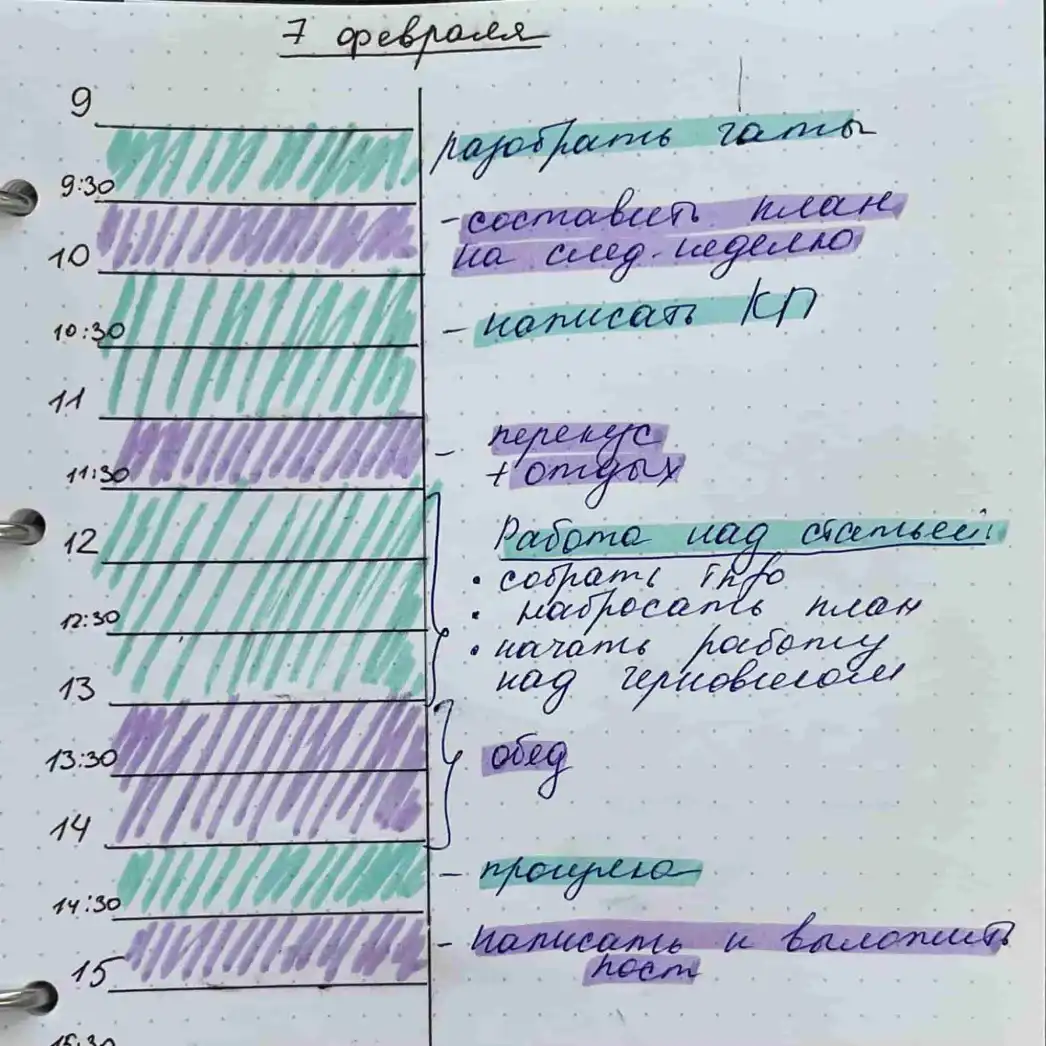 7 февраля
9
разобрать чаты
9:30
- составить план
на след. неделю
10
10:30
- написать КП
11
- перекус
+ отдых
11:30
Работа над статьей:
12
• собрать info
• набросать план
12:30
• начать работу
над черновиком
13
13:30
обед
14
- прогулка
14:30
- написать и выложить
пост
15
15:30